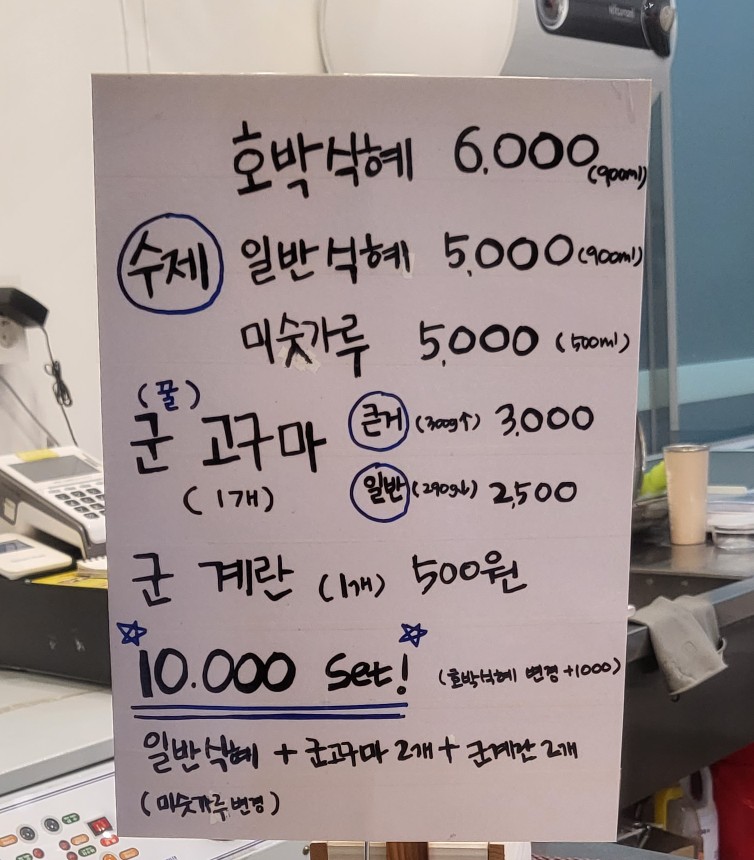 호박식혜 6,000 (900ml)
수제 일반식혜 5,000 (900ml)
미숫가루 5,000 (500ml)
(꿀)
군 고구마 큰거 (300g↑) 3,000
(1개) 일반 (290g↓) 2,500
군 계란 (1개) 500원
☆10.000 Set!☆ (호박식혜 변경 +1000)
일반식혜 + 군고구마 2개 + 군계란 2개
(미숫가루 변경)